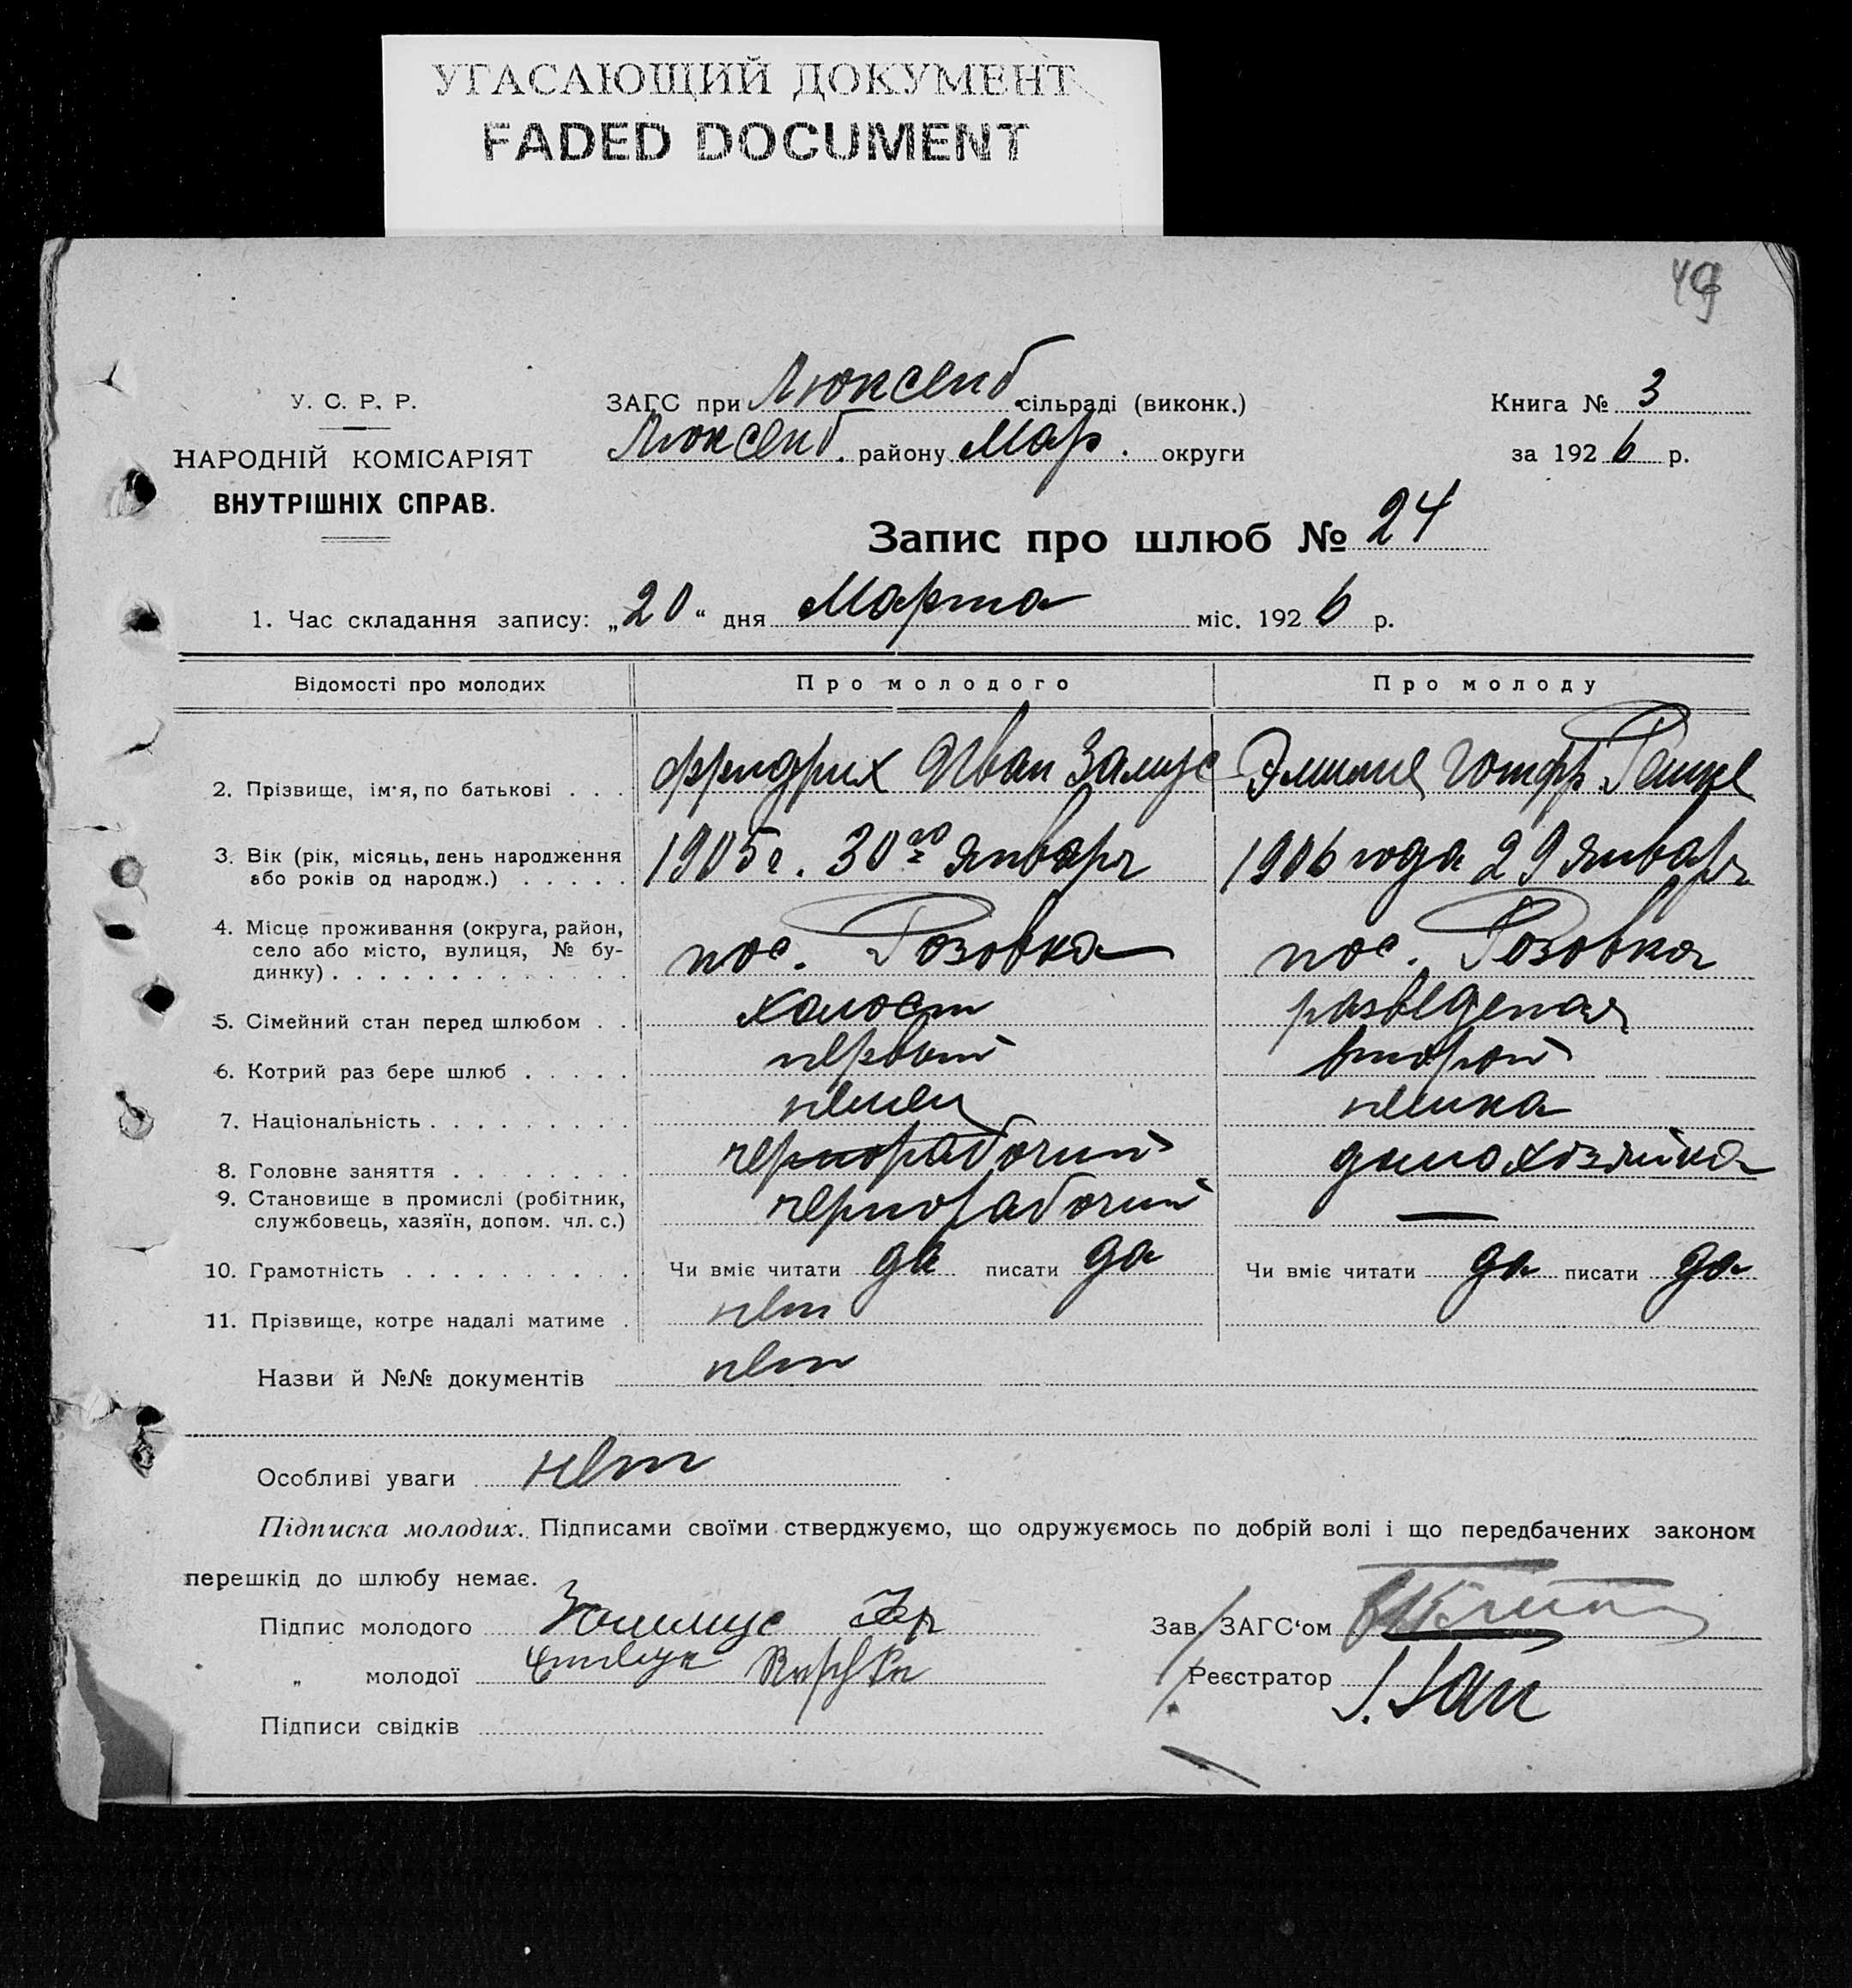 УГАСАЮЩИЙ ДОКУМЕНТ
FADED DOCUMENT
49
У. С. Р. Р.
НАРОДНІЙ КОМІСАРІЯТ
ВНУТРІШНІХ СПРАВ.
ЗАГС при Люксенб. сільраді (виконк.)
Люксенб. району Мар. округи
Книга № 3
за 1926 р.
Запис про шлюб № 24
1. Час складання запису: „20“ дня Марта міс. 1926 р.
Відомості про молодих Про молодого Про молоду
2. Прізвище, ім'я, по батькові . . . Фридрих Иван Замус Готфр.
3. Вік (рік, місяць, день народження
або років од народж.) . . . . . 1905 г. 30го Январь 1906 года 29 Январь
4. Місце проживання (округа, район,
село або місто, вулиця, № бу-
динку) . . . . . . . . . . . . пос. Розовка пос. Розовка
5. Сімейний стан перед шлюбом . . холост разведеная
6. Котрий раз бере шлюб . . . . . первый второй
7. Національність . . . . . . . . . немец немка
8. Головне заняття . . . . . . . . чернорабочий домохізяйка
9. Становище в промислі (робітник,
службовець, хазяїн, допом. чл. с.) чернорабочий —
10. Грамотність . . . . . . . . . . Чи вміє читати да писати да Чи вміє читати да писати да
11. Прізвище, котре надалі матиме . нет
Назви й №№ документів нет
Особливі уваги нет
Підписка молодих. Підписами своїми стверджуємо, що одружуємось по добрій волі і що передбачених законом
перешкід до шлюбу немає.
Підпис молодого Фр
„ молодої
Підписи свідків
Зав. ЗАГС‘ом
Реєстратор